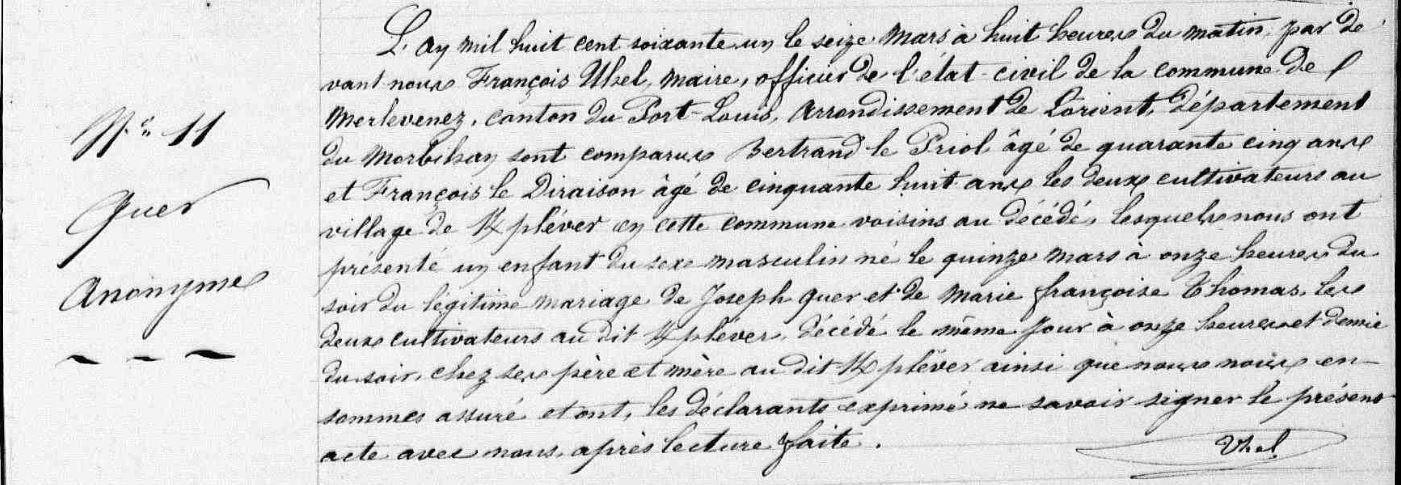 N.° 11
quer
anonyme
L'an mil huit cent soixante un le seize mars à huit heures du matin, par de
vant nous François Uhel, maire, officier de l'état-civil de la commune de
Merlevenez, canton du Port-Louis, arrondissement de Lorient, département
du Morbihan sont comparus Bertrand le Priol âgé de quarante cinq ans
et François le Diraison âgé de cinquante huit ans les deux cultivateurs au
village de K/pléver en cette commune voisins au décédé, lesquels nous ont
présenté un enfant du sexe masculin né le quinze mars à onze heures du
soir du légitime mariage de Joseph quer et de Marie françoise Thomas, les
deux cultivateurs au dit K/pléver, décédé le même jour à onze heures et demie
du soir, chez ses père et mère au dit K/pléver ainsi que nous nous en-
sommes assuré et ont, les déclarants exprimé ne savoir signer le présent
acte avec nous après lecture faite.
Uhel